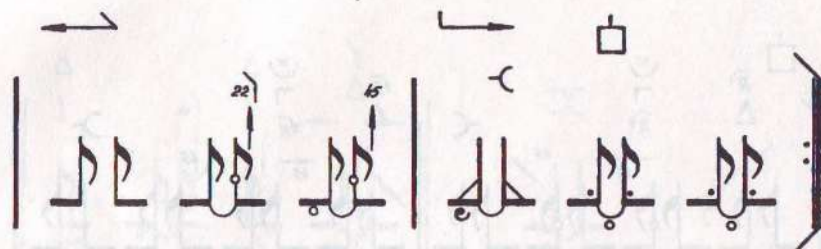 22 45